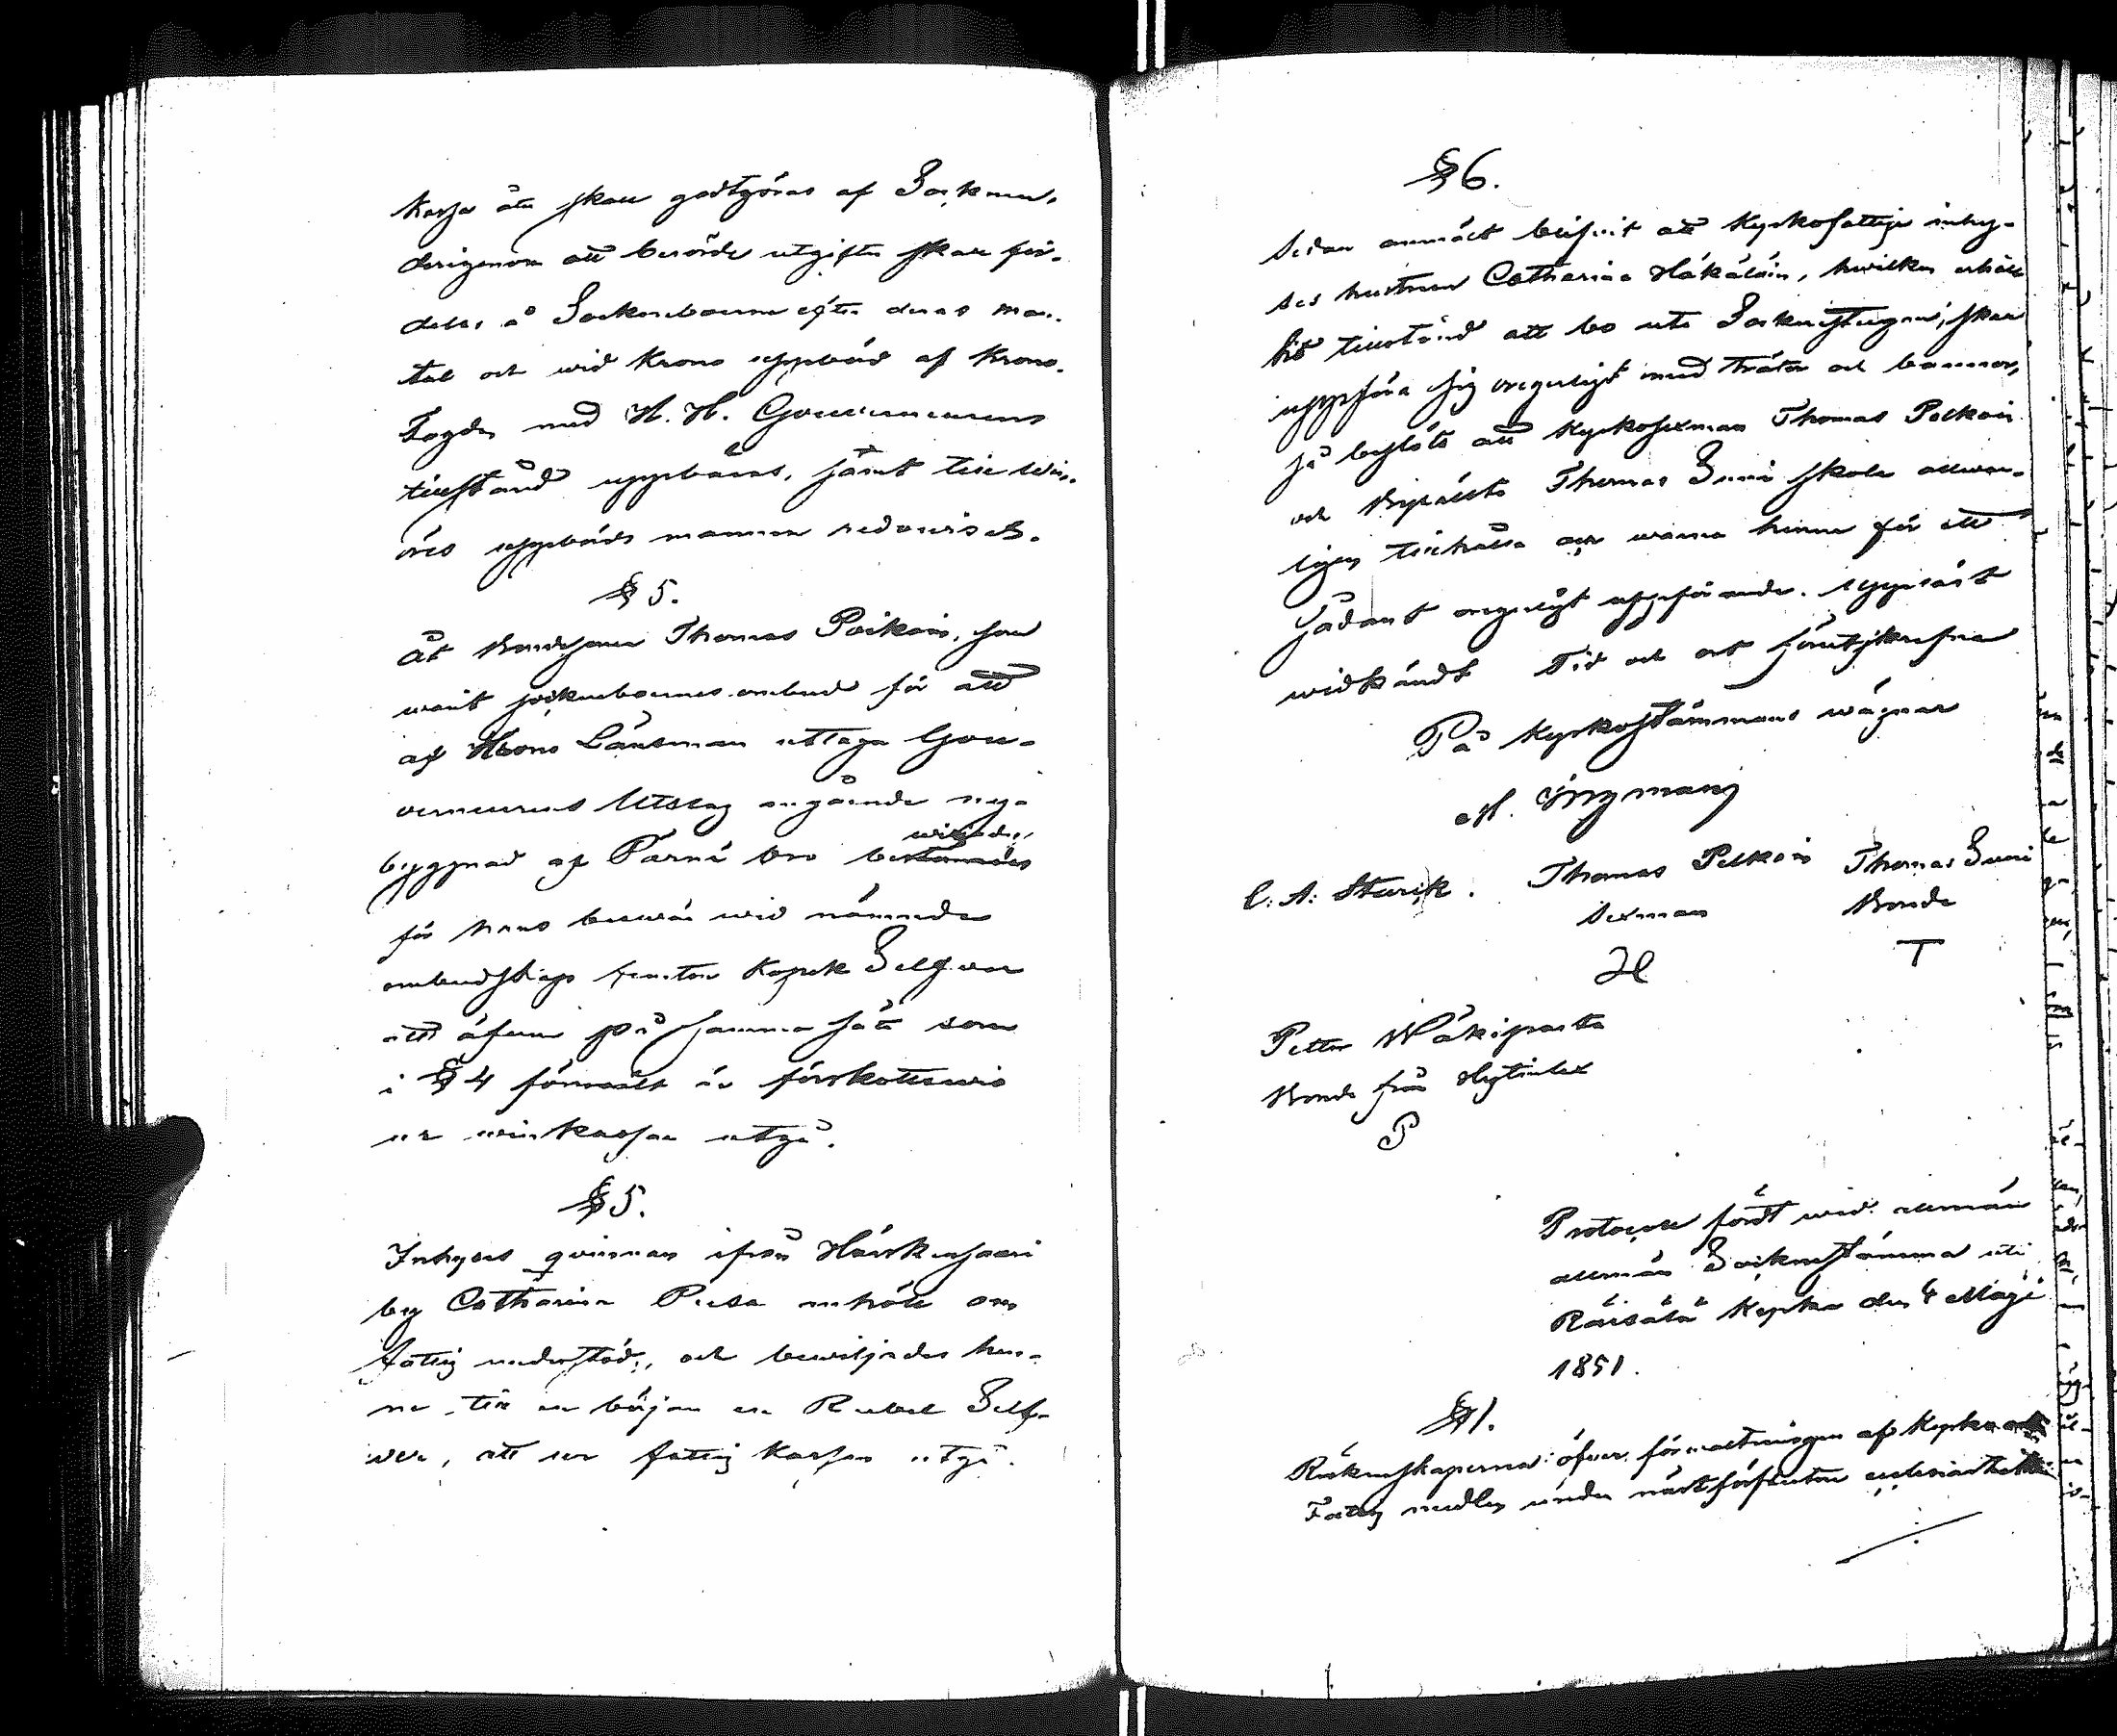 Kassa åter skall godtgöras af Socknen,
derigenom att berörde utgifter skall för-
delas å Sockneboerne efter deras man-
tal och wid Krono uppbörd af Krono-
Fogden med H. H. Gouverneurens
tillstånd uppbäras, samt till
uppbörds mannen redowisas.
§ 5.
Åt Bondesonen Thomas Poikoin, som
warit sockneboernes ombud för att
af Krono Länsman uttaga Gou-
verneurens Utslag angående ny-
byggnad af Pärnä bro
wiljades
för hans beswär wid nämnde
ombudskap femton Kopek Silfver
att äfven på samma sätt som
i § 4 förmält är förskottswis
ur winkassan utgå.
§ 5.
Inhyses qvinnan ifrån Hauskansaari
by Catharina Pusa anhöll om
fattig understöd, och bewiljades hen-
ne till en början en Rubel Silf-
ver, att ur fattig Kassan utgå.
§ 6.
Sedan anmält blifwit att Kyrkofattige inhy-
ses hustrun Catharina Häkäläin, hwilken erhål-
lit tillstånd att bo uti Sockenstugan, skall
uppföra sig oregerligt med träta och bannor,
så beslöts att Kyrkosexman Thomas Pelkoin
och Thomas Suni skola allwar-
ligen tillhålla och warna henne för ett
sådant oregerligt uppförande. Uppläst
widkändt Tid och ort förutskrefne
På Kyrkostämmans wägnar
M. Ingman
C. A. Starck. Thomas Pelkoin Thomas Suni
Sexman Bonde
H T
Petter Wäkiparta
Bonde från Hytinlax
P
Protocoll fördt wid allmän
allmän Sockenstämma uti
Räisälä Kyrka den 4 Maji
1851.
§ 1.
Räkenskaperna öfwer förwaltningen af Kyrko och
Fattig medlen under nästförflutne ecclesiastik